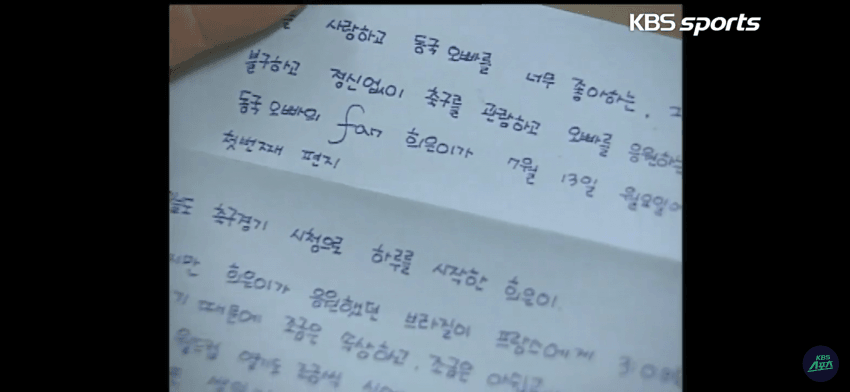 KBS sports
를 사랑하고 동국 오빠를 너무 좋아하는. 그
불구하고 정신없이 축구를 관람하고 오빠를 응원하는
동국 오빠의 fan 희은이가 7월 13일 월요일에
첫번째 편지!
늘도 축구경기 시청으로 하루를 시작한 희은이.
지만 희은이가 응원했던 브라질이 프랑스에게 3:0
기 때문에 조금은 속상하고, 조금은 아쉬고
월드컵 열기도 조금씩
KBS
스포츠